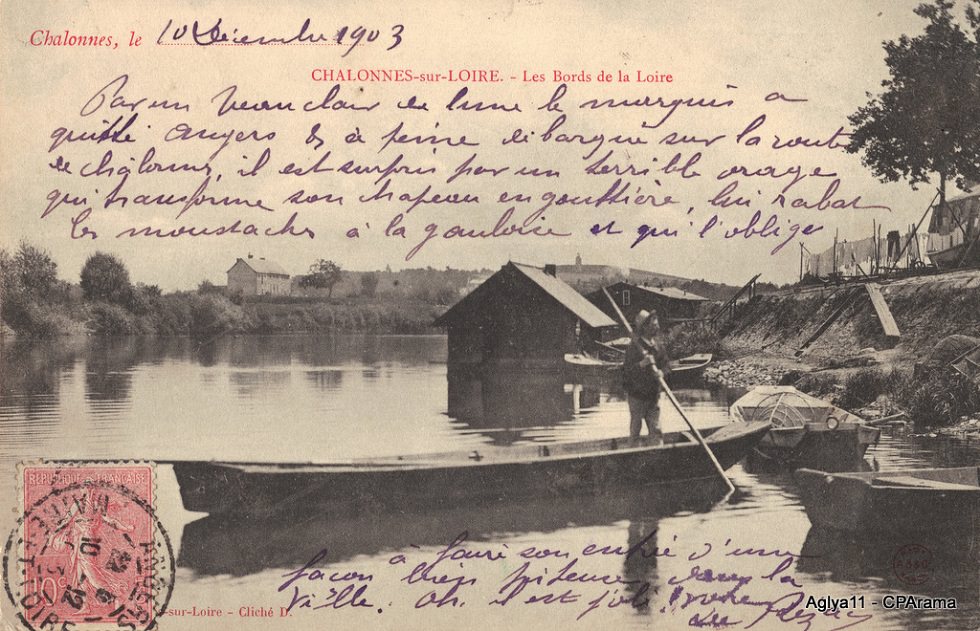 Chalonnes, le 10 Décembre 1903
CHALONNES-sur-LOIRE. - Les Bords de la Loire
Par un beau clair de lune le marquis a
quitté Angers & à peine débarqué sur la route
de Chalonnes, il est surpris par un terrible orage
qui transforme son chapeau en gouttière, lui rabat
les moustaches à la gauloise et qui l'oblige
à faire son entrée d'une
façon bien piteuse dans la
Ville. Oh. il est joli! votre
de
REPUBLIQUE FRANÇAISE
10c
MAINE
10
ANGERS
LOIRE
-sur-Loire - Cliché D.
Aglya11 - CPArama